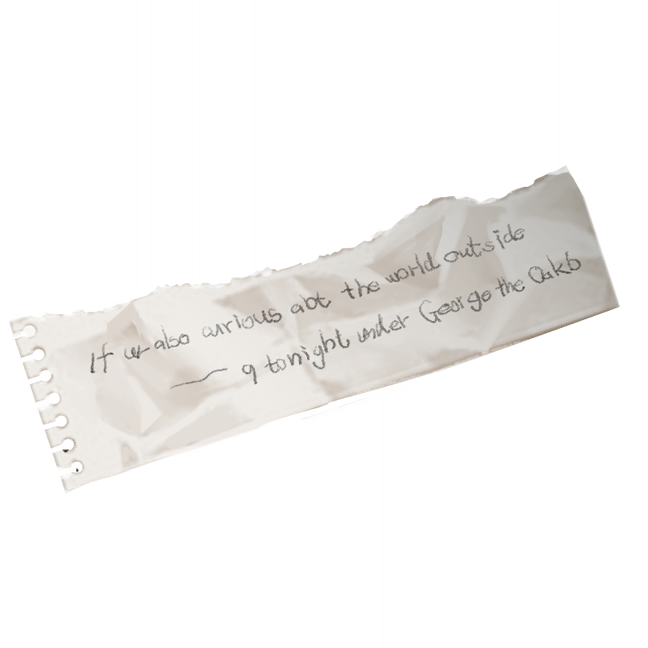 If ur also curious abt the world outside
9 tonight under George the